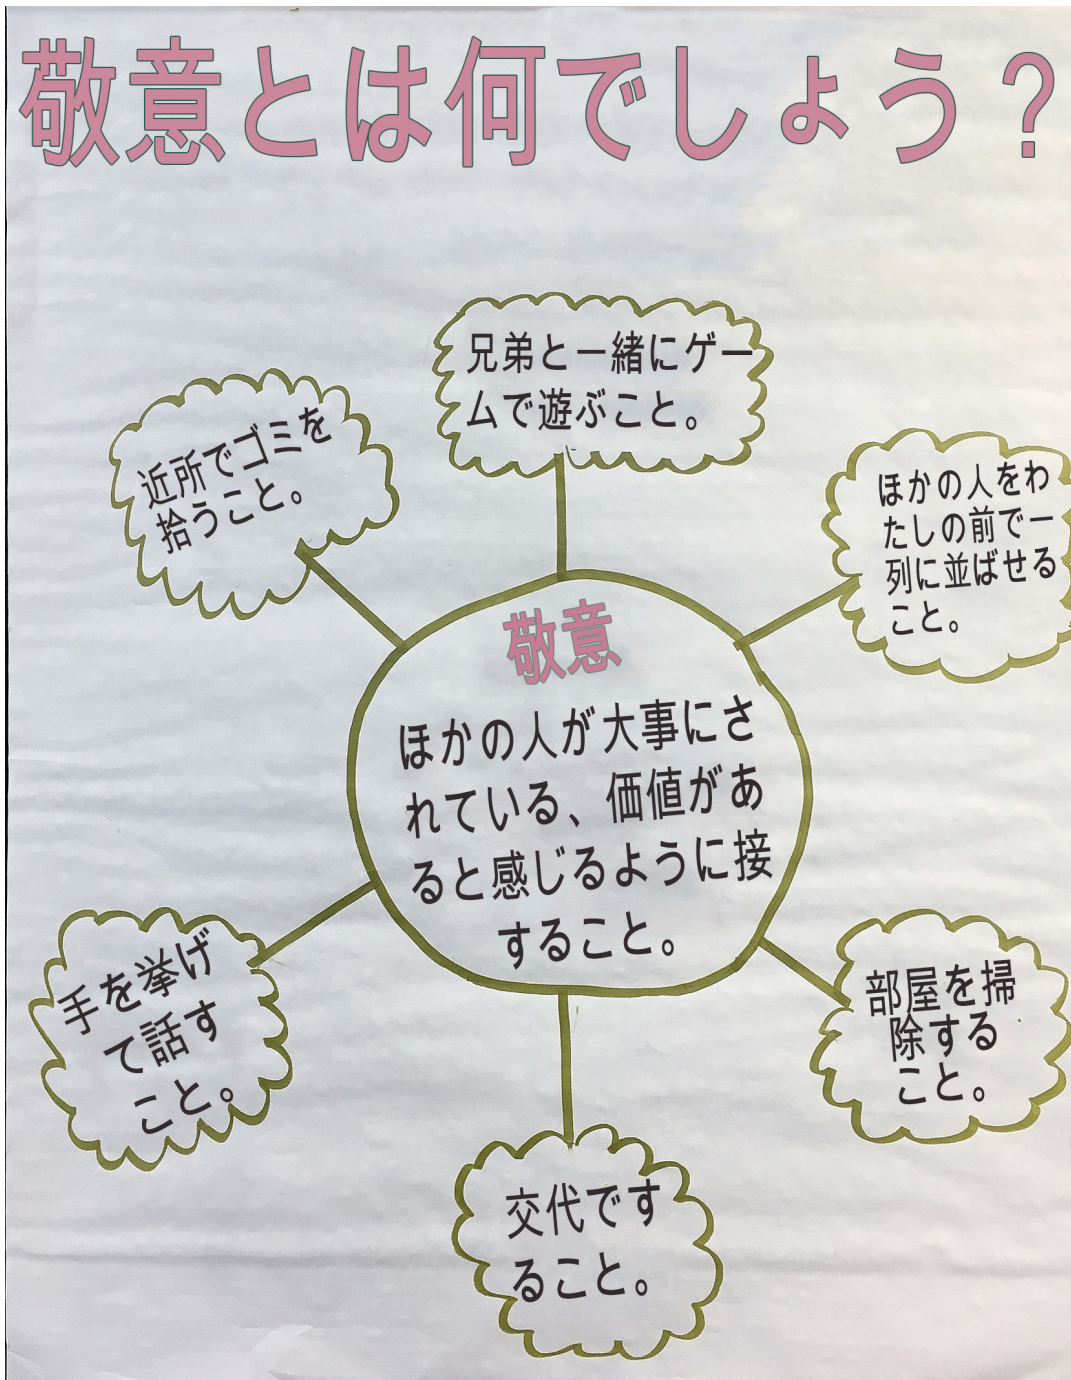 敬意とは何でしょう？
兄弟と一緒にゲー
ムで遊ぶこと。
近所でゴミを
拾うこと。
ほかの人をわ
たしの前で一
列に並ばせる
こと。
敬意
ほかの人が大事にさ
れている、価値があ
ると感じるように接
すること。
手を挙げ
て話す
こと。
部屋を掃
除する
こと。
交代です
ること。